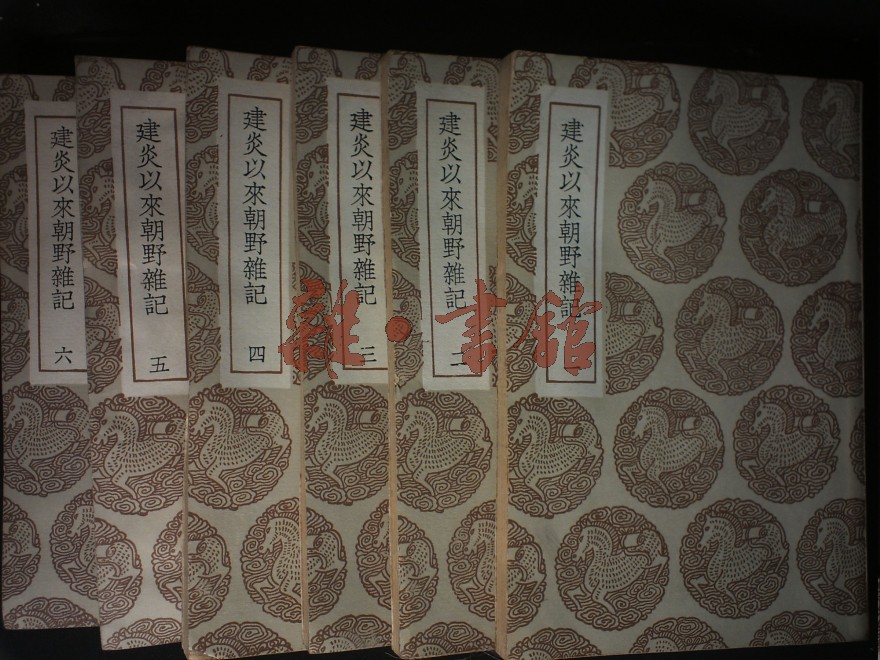 建炎以來朝野雜記
建炎以來朝野雜記
二
建炎以來朝野雜記
三
建炎以來朝野雜記
四
建炎以來朝野雜記
五
建炎以來朝野雜記
六
雜·書館